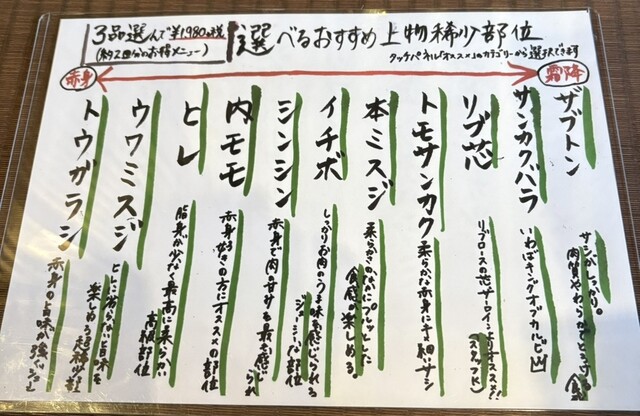 3品選んで¥1,980+税
(約2皿分のお得メニュー)
選べるおすすめ上物稀少部位
タッチパネル「オススメ」のカテゴリーから選択できます
赤身
霜降
ザブトン
サシがしっかり。
サンカクバラ
いわばキングオブカルビ
リブ芯
リブロースの芯 サーロインよりオススメ!!
(スタッフK)
トモサンカク
柔らかな赤身に千よ細サシ
本ミスジ
柔らかさのなかにプリッとした
食感が楽しめる。
イチボ
しっかりお肉のうま味も感じられる
ジューシーな部位
シンシン
赤身で肉の甘みを最も感じられる
内モモ
赤身好きの方にオススメの部位
ヒレ
脂身が少なく最高に柔らかい
高級部位
ウワミスジ
ヒレに劣らない旨味を
楽しめる超稀少部位
トウガラシ
赤身の旨味が強い